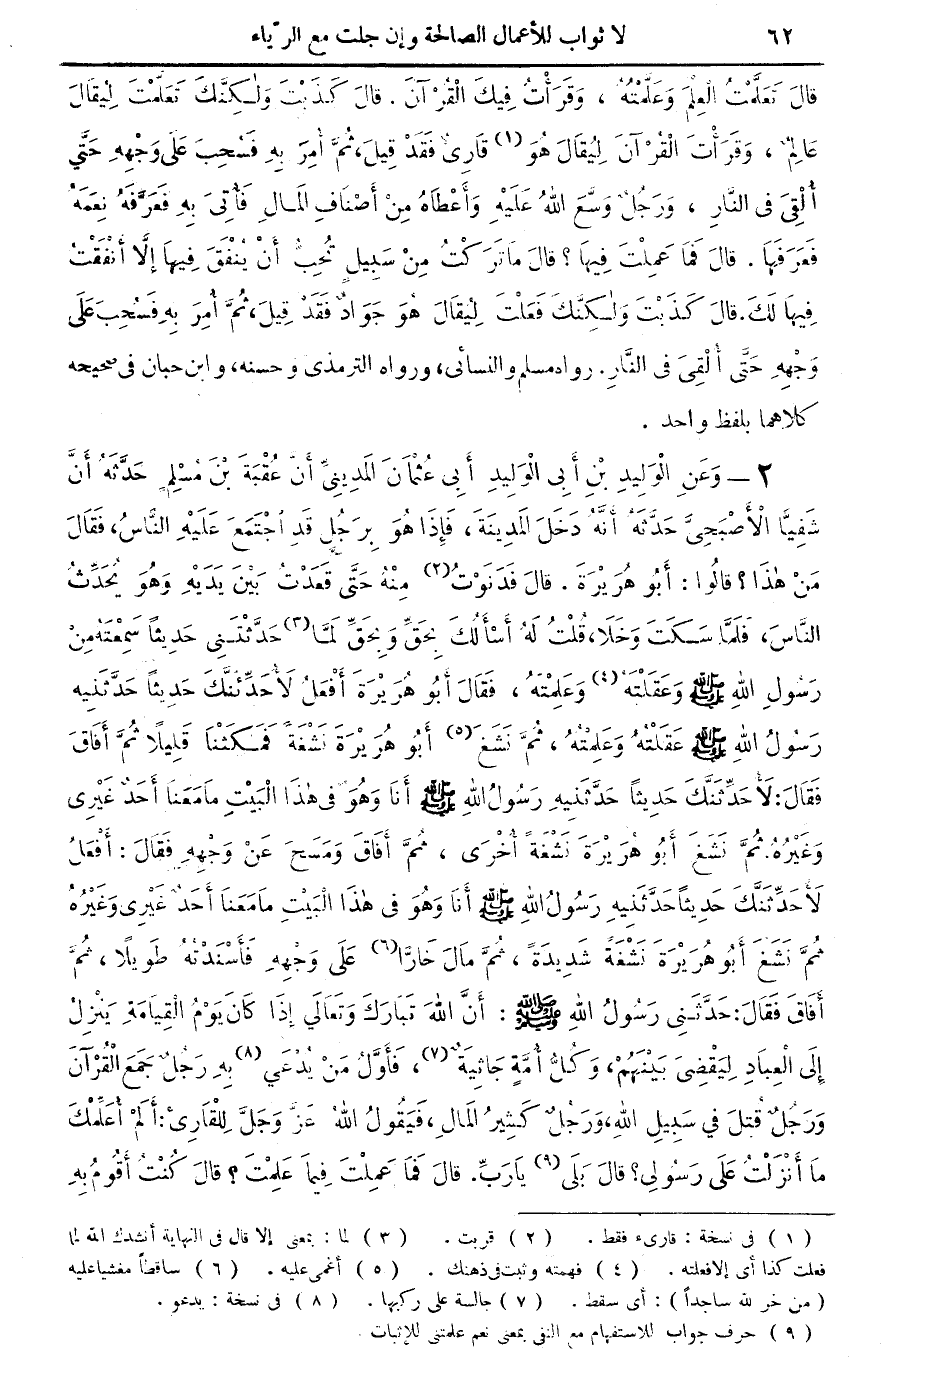 ٦٢ لا ثواب للأعمال الصالحة وإن جلت مع الرّياء
قالَ تَعَلَّمْتُ الْعِلْمَ وَعَلَّمْتُهُ ، وَقَرَأْتُ فِيكَ الْقُرْآنَ . قالَ كَذَبْتَ وَلٰكِنَّكَ تَعَلَّمْتَ لِيُقَالَ
عَالِمٌ ، وَقَرَأْتَ الْقُرْآنَ لِيُقَالَ هُوَ (١) قَارِئٌ فَقَدْ قِيلَ، ثُمَّ أُمِرَ بِهِ فَسُحِبَ عَلَى وَجْهِهِ حَتَّى
أُلْقِيَ فى النَّارِ ، وَرَجُلٌ وَسَّعَ اللهُ عَلَيْهِ وَأَعْطَاهُ مِنْ أَصْنَافِ الْمَالِ فَأُتِىَ بِهِ فَعَرَّفَهُ نِعَمَهُ
فَعَرَفَهَا . قالَ فَمَا عَمِلْتَ فِيهَا ؟ قالَ مَاتَرَكْتُ مِنْ سَبِيلٍ تُحِبُّ أَنْ يُنْفَقَ فِيهَا إِلَّا أَنْفَقْتُ
فِيهَا لَكَ. قالَ كَذَبْتَ وَلٰكِنَّكَ فَعَلْتَ لِيُقَالَ هُوَ جَوَادٌ فَقَدْ قِيلَ، ثُمَّ أُمِرَ بِهِ فَسُحِبَ عَلَى
وَجْهِهِ حَتَّى أُلْقِىَ فى النَّارِ. رواه مسلم والنسائى، ورواه الترمذى وحسنه، وابن حبان فى صحيحه
كلاهما بلفظ واحد .
٢ — وَعَنِ الْوَلِيدِ بْنِ أَبِى الْوَلِيدِ أَبِى عُثْمَانَ الْمَدِينِىِّ أَنَّ عُقْبَةَ بْنَ مُسْلِمٍ حَدَّثَهُ أَنَّ
شَفِيًّا الْأَصْبَحِىَّ حَدَّثَهُ أَنَّهُ دَخَلَ الْمَدِينَةَ ، فَإِذَا هُوَ بِرَجُلٍ قَدِ اجْتَمَعَ عَلَيْهِ النَّاسُ، فَقَالَ
مَنْ هٰذَا ؟ قالُوا : أَبُو هُرَيْرَةَ . قالَ فَدَنَوْتُ (٢) مِنْهُ حَتَّى قَعَدْتُ بَيْنَ يَدَيْهِ وَهُوَ يُحَدِّثُ
النَّاسَ، فَلَمَّا سَكَتَ وَخَلَا، قُلْتُ لَهُ أَسْأَلُكَ بِحَقٍّ وَبِحَقٍّ لَمَّا (٣) حَدَّثْتَنِى حَدِيثًا سَمِعْتَهُ مِنْ
رَسُولِ اللهِ ﷺ وَعَقَلْتَهُ (٤) وَعَلِمْتَهُ ، فَقَالَ أَبُو هُرَيْرَةَ أَفْعَلُ لَأُحَدِّثَنَّكَ حَدِيثًا حَدَّثَنِيهِ
رَسُولُ اللهِ ﷺ عَقَلْتُهُ وَعَلِمْتُهُ ، ثُمَّ نَشَغَ (٥) أَبُو هُرَيْرَةَ نَشْغَةً فَمَكَثْنَا قَلِيلًا ثُمَّ أَفَاقَ
فَقَالَ: لَأُحَدِّثَنَّكَ حَدِيثًا حَدَّثَنِيهِ رَسُولُ اللهِ ﷺ أَنَا وَهُوَ فى هٰذَا الْبَيْتِ مَامَعَنَا أَحَدٌ غَيْرِى
وَغَيْرُهُ. ثُمَّ نَشَغَ أَبُو هُرَيْرَةَ نَشْغَةً أُخْرَى ، ثُمَّ أَفَاقَ وَمَسَحَ عَنْ وَجْهِهِ فَقَالَ : أَفْعَلُ
لَأُحَدِّثَنَّكَ حَدِيثًا حَدَّثَنِيهِ رَسُولُ اللهِ ﷺ أَنَا وَهُوَ فى هٰذَا الْبَيْتِ مَامَعَنَا أَحَدٌ غَيْرِى وَغَيْرُهُ
ثُمَّ نَشَغَ أَبُو هُرَيْرَةَ نَشْغَةً شَدِيدَةً ، ثُمَّ مَالَ خَارًّا (٦) عَلَى وَجْهِهِ فَأَسْنَدْتُهُ طَوِيلًا ، ثُمَّ
أَفَاقَ فَقَالَ: حَدَّثَنِى رَسُولُ اللهِ ﷺ : أَنَّ اللهَ تَبَارَكَ وَتَعَالَى إِذَا كَانَ يَوْمُ الْقِيَامَةِ يَنْزِلُ
إِلَى الْعِبَادِ لِيَقْضِىَ بَيْنَهُمْ، وَكُلُّ أُمَّةٍ جَاثِيَةٌ (٧)، فَأَوَّلُ مَنْ يُدْعَى (٨) بِهِ رَجُلٌ جَمَعَ الْقُرْآنَ
وَرَجُلٌ قُتِلَ فى سَبِيلِ اللهِ، وَرَجُلٌ كَثِيرُ الْمَالِ، فَيَقُولُ اللهُ عَزَّ وَجَلَّ لِلْقَارِئِ: أَلَمْ أُعَلِّمْكَ
مَا أَنْزَلْتُ عَلَى رَسُولِى؟ قالَ بَلَى (٩) يَارَبِّ. قالَ فَمَا عَمِلْتَ فِيمَا عَلِمْتَ ؟ قالَ كُنْتُ أَقُومُ بِهِ
( ١ ) فى نسخة : قارىء فقط . ( ٢ ) قربت . ( ٣ ) لما : بمعنى إلا قال فى النهاية أنشدك الله لما
فعلت كذا أى إلا فعلته . ( ٤ ) فهمته وثبت فى ذهنك . ( ٥ ) أغمى عليه . ( ٦ ) ساقطاً مغشيا عليه
( من خر لله ساجداً ) : أى سقط . ( ٧ ) جالسة على ركبها . ( ٨ ) فى نسخة : يدعو .
( ٩ ) حرف جواب للاستفهام مع النفى بمعنى نعم علمتنى للإثبات .